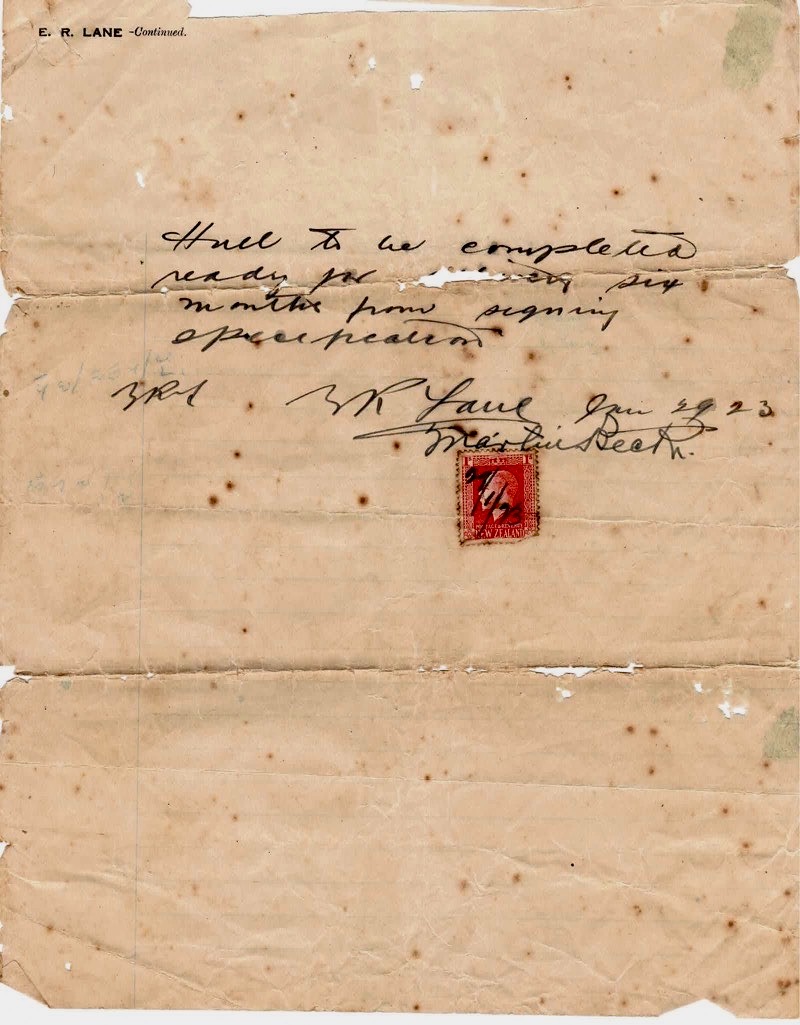 E. R. LANE -Continued.
Hull to be completed
ready for six
months from signing
specification
ERL E R Lane Jan 29 23
Martin Beck.
1d 1d
29/1/23
POSTAGE & REVENUE
NEW ZEALAND